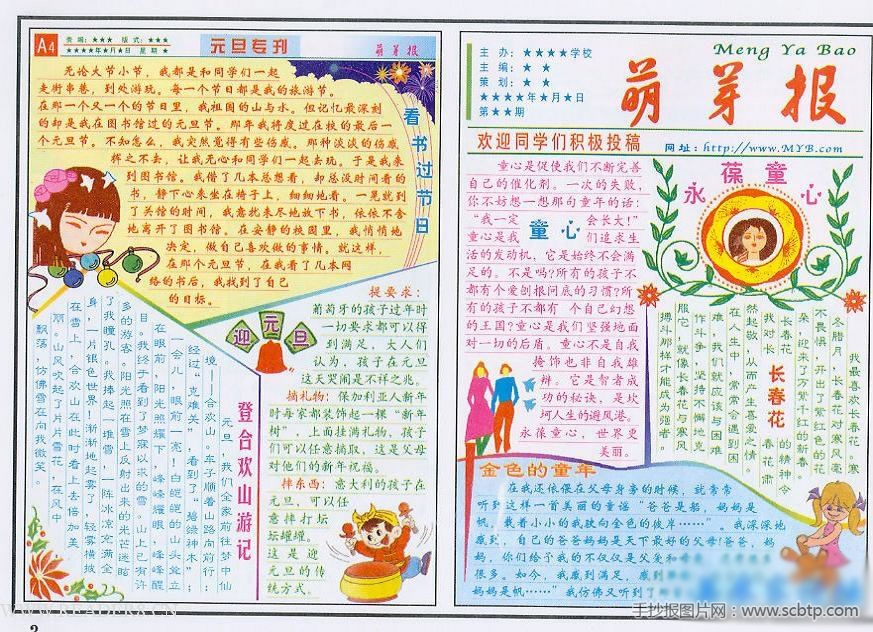 A4
责编：★★★ 版式：★★★
★★★★年★月★日 星期★
元旦专刊
萌芽报
看书过节日
无论大节小节，我都是和同学们一起
走街串巷，到处游玩。每一个节日都是我的旅游节。
在那一个又一个的节日里，我祖国的山与水。但记忆最深刻
的却是我在图书馆过的元旦节。那年我将度过在校的最后一
个元旦节。不知怎么，我突然觉得有些伤感。那种淡淡的伤感
挥之不去，让我无心和同学们一起去玩。于是我来
到图书馆。我借了几本总想看，却总没时间看的
书，静下心来坐在椅子上，细细地看。一晃就到
了关馆的时间，我意犹未尽地放下书，依依不舍
地离开了图书馆。在安静的校园里，我悄悄地
决定，做自己喜欢做的事情。就这样，
在那个元旦节，在我看了几本网
络的书后，我找到了自己
的目标。
登合欢山游记
元旦，我们全家前往梦中仙
境──合欢山。车子顺着山路向前行；
经过“克难关”，看到了“碧绿神木”；
一会儿，眼前一亮！白皑皑的山头耸立
在眼前，阳光照耀下，峰峰耀眼，峰峰醒
目。我终于看到了梦寐以求的雪。山上已有许
多的游客。阳光照在雪上反射出来的光芒迷眩
了我瞳孔。我捧起一堆雪，一阵冰凉充满全
身，一片银色世界！渐渐地起雾了，轻雾横披
在雪上，合欢山在此时看上去倍加美
丽。山风吹起了片片雪花，在风中
飘落，仿佛雪在向我微笑。
迎元旦
提要求：
葡萄牙的孩子过年时
一切要求都可以得
到满足，大人们
认为，孩子在元旦
这天哭闹是不祥之兆。
摘礼物：保加利亚人新年
时每家都装饰起一棵“新年
树”，上面挂满礼物，孩子
们可以任意摘取，这是父母
对他们的新年祝福。
摔东西：意大利的孩子在
元旦，可以任
意摔打坛
坛罐罐。
这是迎
元旦的传
统方式。
主办：★★★★学校
主编：★ ★
策划：★ ★
★★★★年★月★日
第★★期
Meng Ya Bao
萌芽报
欢迎同学们积极投稿
网址：http://www.MYB.com
永葆童心
童心
童心是促使我们不断完善
自己的催化剂。一次的失败，
你不妨想一想那句童年的话：
“我一定会长大！”
童心是我们追求生
活的发动机，它是始终不会满
足的。不是吗？所有的孩子不
都有个爱刨根问底的习惯？所
有的孩子不都有 个自己幻想
的王国？童心是我们坚强地面
对一切的后盾。童心不是自我
掩饰也非自我雄
辩。它是智者成
功的秘诀，是坎
坷人生的避风港。
永葆童心，世界更
美丽。
长春花
我最喜欢长春花。寒
冬腊月，长春花对寒风毫
不畏惧，开出了紫红色的花
朵，迎来了万紫千红的新春。
长春花的精神令
我对长春花肃
然起敬，从而产生喜爱之情。
在人生中，常常会遇到困
难，我们就应该与困难
作斗争，坚持不懈地克
服它，就像长春花与寒风
搏斗那样才能成为强者。
金色的童年
在我还依偎在父母身旁的时候，就常常
听到这样一首美丽的童谣“爸爸是船，妈妈是
帆，载着小小的我驶向金色的彼岸……”。我深深地
感到，自己的爸爸妈妈是天下最好的父母！爸爸，妈
妈，你们给予我的不仅仅是父爱和
很多。如今，我感到满足，感到
妈妈是帆……”我仿佛又听到了
手抄报图片网：www.scbtp.com
2